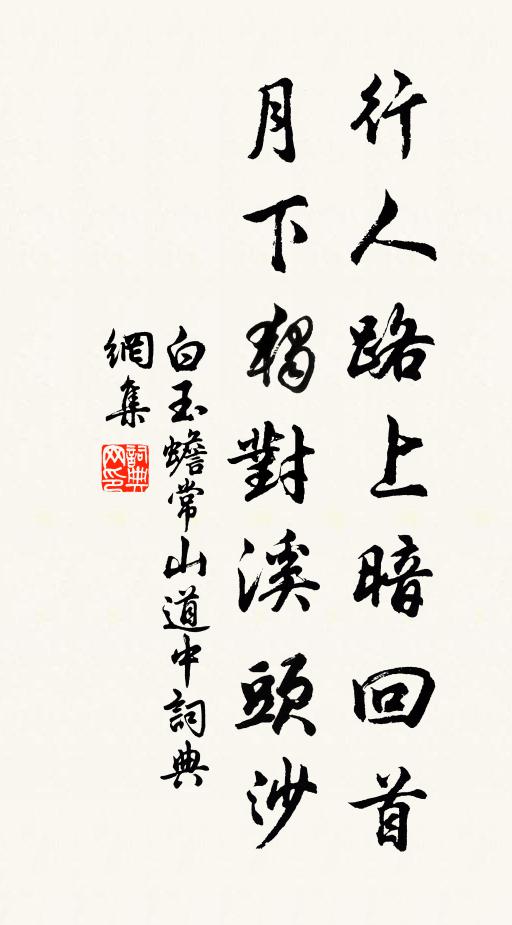 行人路上暗回首
月下獨對溪頭沙
白玉蟾常山道中詞典
網集
詞典网印